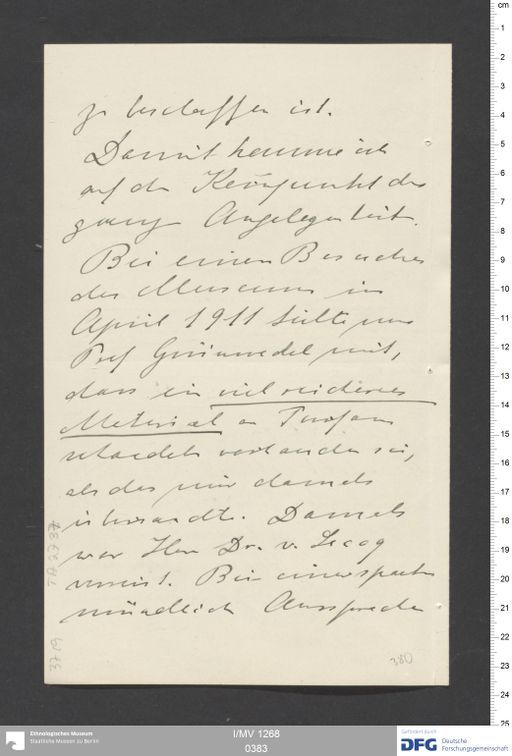 zu beschaffen ist.
Damit komme ich
auf den Kernpunkt der
ganzen Angelegenheit.
Bei einem Besuche
des Museums im
April 1911 teilte mir
Prof Grünwedel mit,
dass ein viel reicheres
Material an Turfan
schaedeln vorhanden sei,
als das mir damals
übersandte. Damals
war Herr Dr. v. Lecoq
verreist. Bei einer spaeteren
mündlichen Aussprache
3719
380
I/MV 1268
0383
Ethnologisches Museum
Staatliche Museen zu Berlin
Gefördert durch
DFG Deutsche
Forschungsgemeinschaft
cm
1
2
3
4
5
6
7
8
9
10
11
12
13
14
15
16
17
18
19
20
21
22
23
24
25